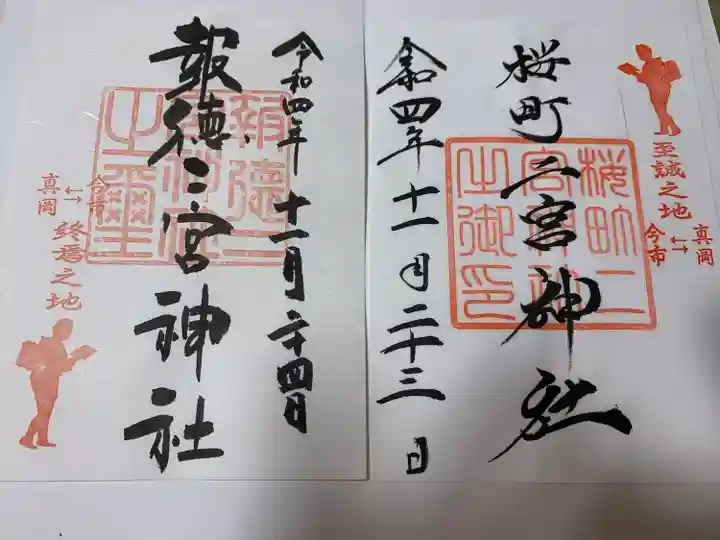 桜町二宮神社
令和四年十一月二十三日
桜町二
宮神社
之御印
至誠之地
真岡
↔
今市
報徳二宮神社
令和四年十一月二十四日
報徳二
宮神社
之璽
今市
↔
真岡
終焉之地